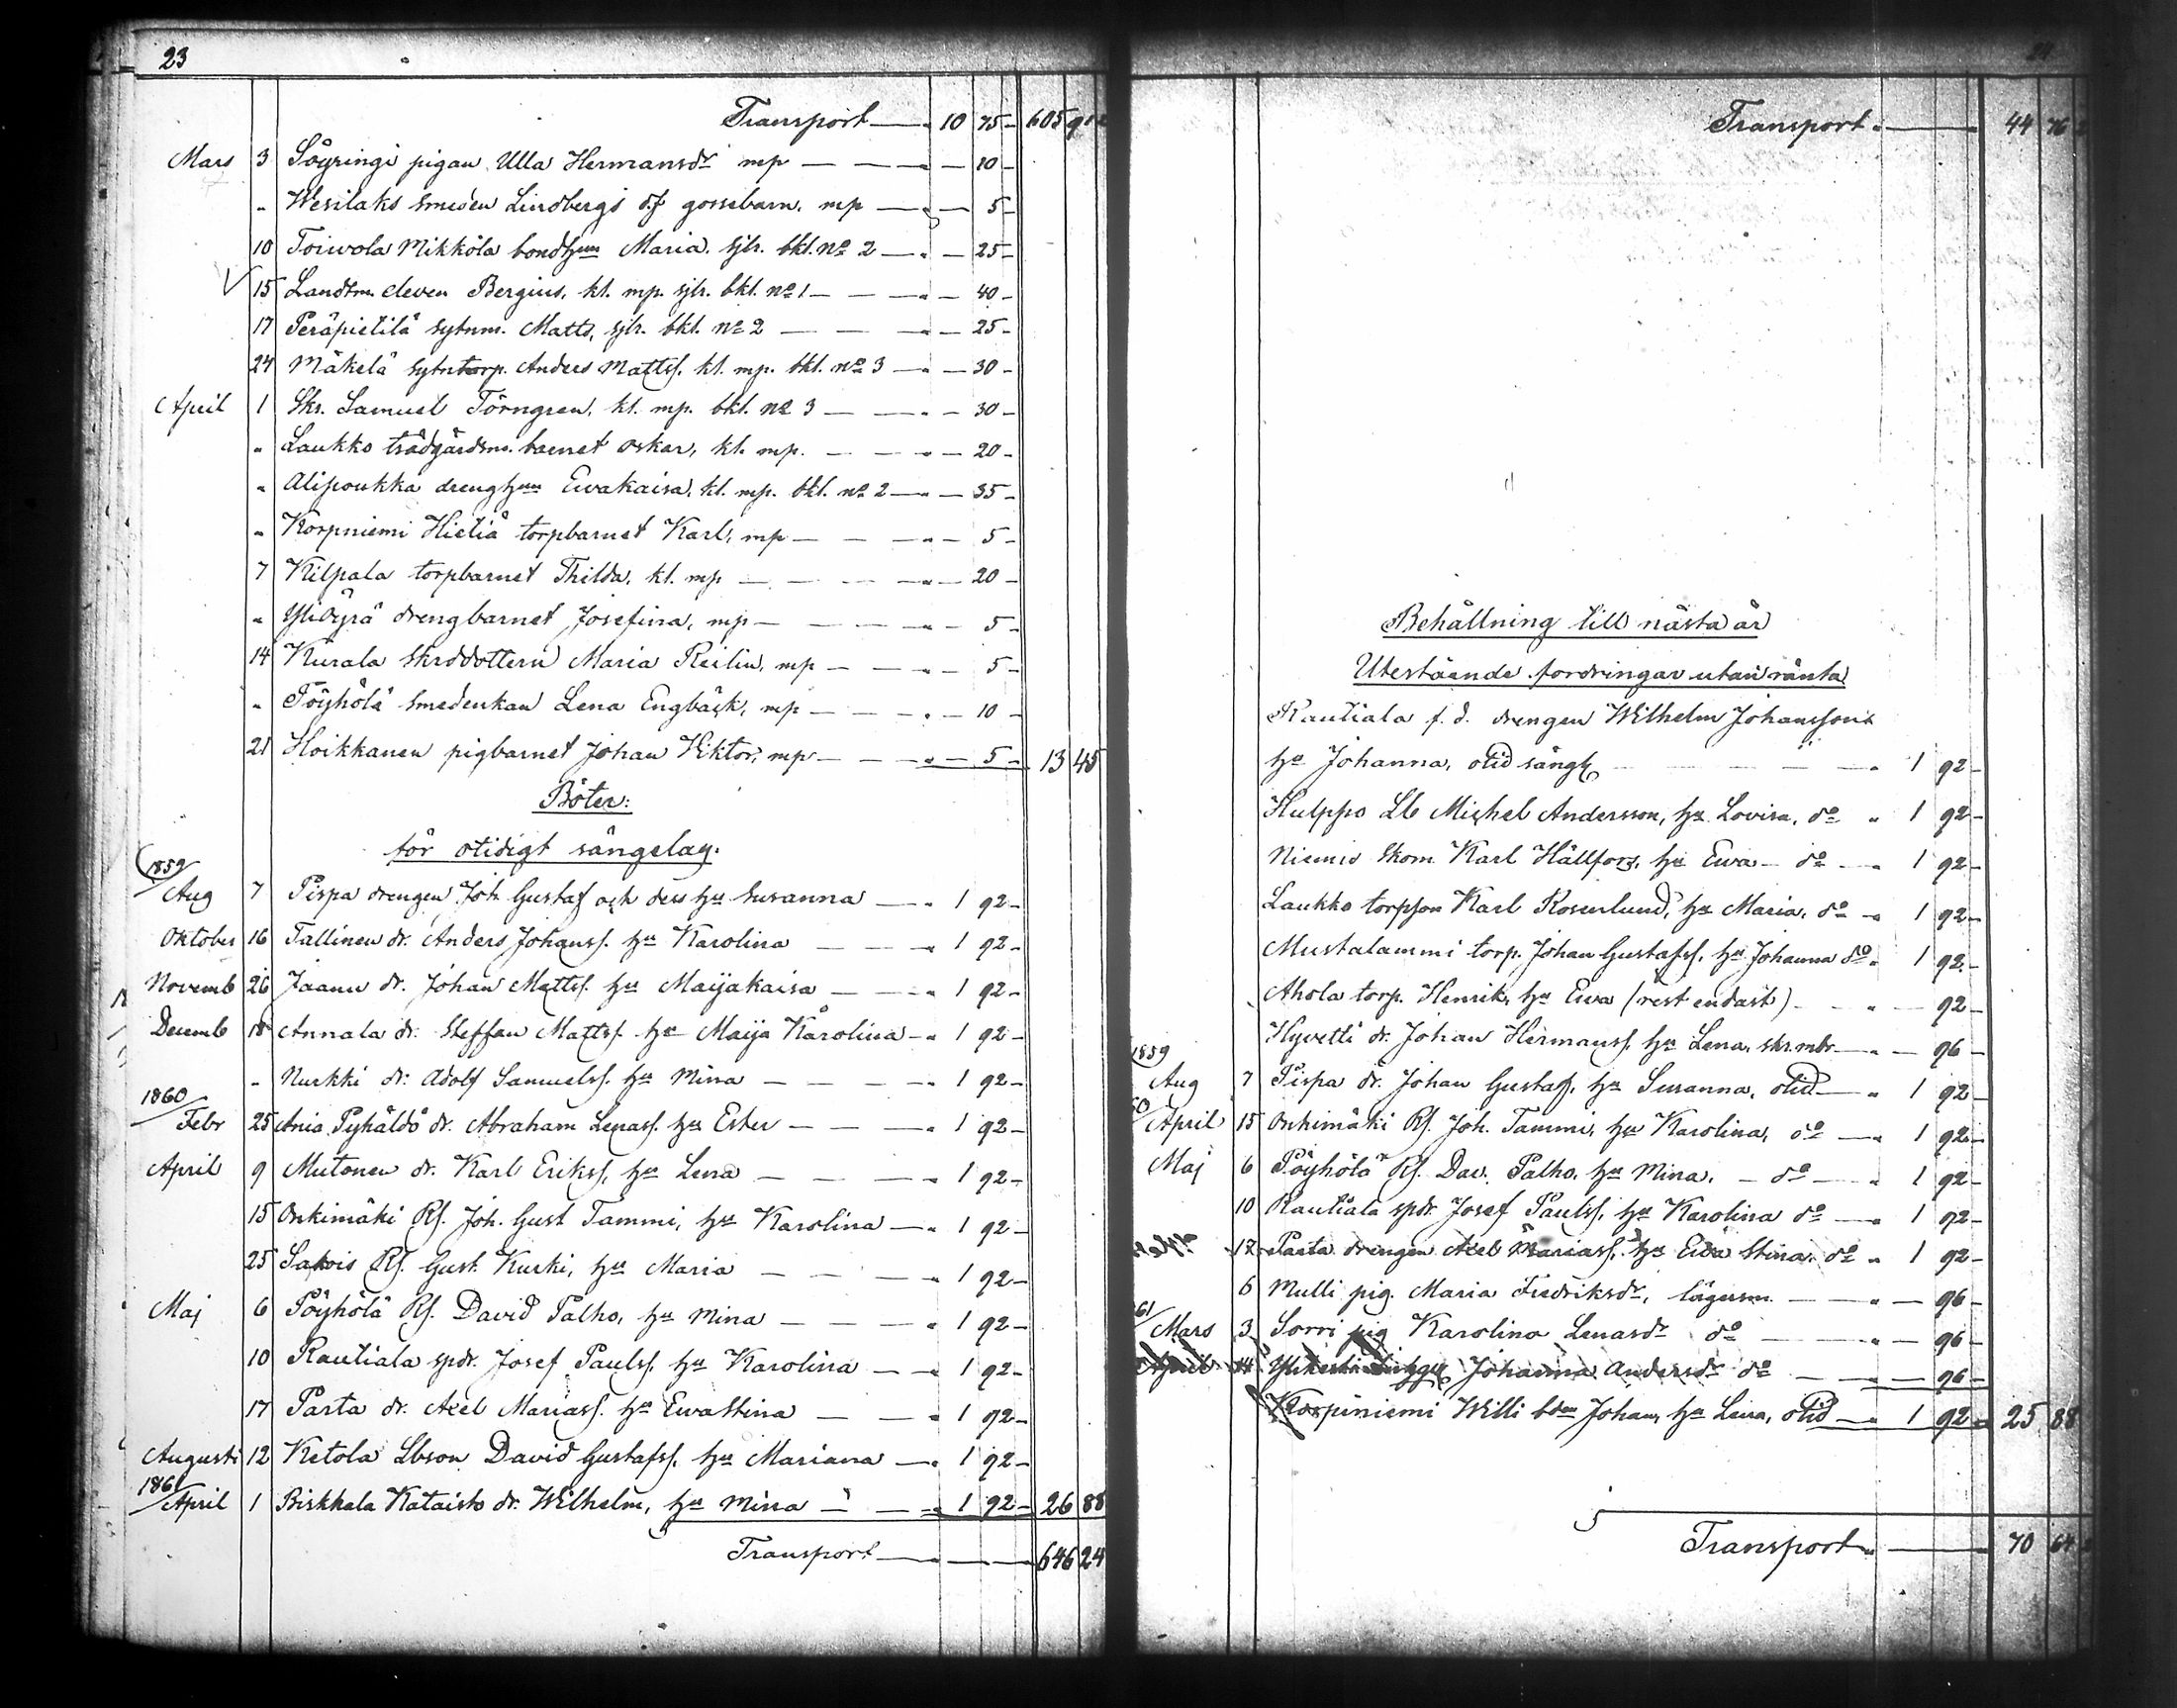 23
Transport 10 75 605 91
Mars 3 Söyringi pigan Ulla Hermansdr mp 10
" Wesilaks smeden Lindbergs d.f. gossebarn, mp 5
10 Toivola Mikkola bondhun Maria sjlr. bkl. No 2 25
15 Landtm. eleven Bergius, kl. mp. sjlr. bkl. No 1 40
17 Peräpietilä sytnm. Matts, sjlr. bkl. No 2 25
24 Mäkelä sytntorp. Anders Mattss. kl. mp. bkl. No 3 30
April 1 Skr. Samuel Törngren, kl. mp. bkl. No 3 30
" Laukko trädgårdsm. barnet Oskar, kl. mp. 20
" Alipoukka drenghun Ewakaisa, kl. mp. bkl. No 2 35
" Korpniemi Hietiä torpbarnet Karl, mp 5
7 Kilpala torpbarnet Thilda, kl. mp 20
" Ylidyrä drengbarnet Josefina, mp 5
14 Kurala skrddottern Maria Reilin, mp 5
" Töyhölä smedenkan Lena Engbäck, mp 10
21 Hoikkanen pigbarnet Johan Viktor, mp 5 13 45
Böter:
för otidigt sängelag.
1859
Aug 7 Pispa drengen Joh. Gustaf och dess hu Susanna 1 92
Oktober 16 Tallinen dr. Anders Johanss. hu Karolina 1 92
Novemb 26 Jaanu dr. Johan Mattss. hu Maijakaisa 1 92
Decemb 18 Annala dr. Steffan Mattss. hu Maija Karolina 1 92
" Nurkki dr. Adolf Samuelss. hu Mina 1 92
1860
Febr 25 Ania Pyhäldö dr. Abraham Lenass. hu Ester 1 92
April 9 Mutonen dr. Karl Erikss, hu Lena 1 92
15 Onkimäki Rs. Joh. Gust Tammi, hu Karolina 1 92
25 Sakois Rs. Gust. Kurki, hu Maria 1 92
Maj 6 Pöyhölä Rs. David Palho, hu Mina 1 92
10 Rautiala spdr. Josef Paulss. hu Karolina 1 92
17 Pasta dr. Axel Mariass. hu Ewa Stina 1 92
Augusti 12 Ketola Lbson David Gustafss. hu Mariana 1 92
1861
April 1 Pirkkala Kataisto dr. Wilhelm, hu Mina 1 92 26 88
Transport 646 24
24
Transport 44 76
Behållning till nästa år
Utestående fordringar utan ränta
Rautiala f. d. drengen Wilhelm Johanssons
hu Johanna, otid sängl 1 92
Hulppo Lb Michel Andersson, hu Lovisa, do 1 92
Niemis skom Karl Hällfors, hu Ewa do 1 92
Laukko torpson Karl Rosenlund, hu Maria, do 1 92
Mustalammi torp. Johan Gustafss. hu Johanna do 1 92
Ahola torp. Henrik, hu Ewa (rest endast) 92
Hyvetti dr. Johan Hermanss. hu Lena, skr.mbr 96
1859
Aug 7 Pispa dr. Johan Gustafs. hu Susanna, otid 1 92
60
April 15 Onkimäki Rs. Joh. Tammi, hu Karolina, do 1 92
Maj 6 Pöyhölä Rs. Dav. Palho, hu Mina, do 1 92
10 Rautiala spdr. Josef Paulss, hu Karolina do 1 92
17 Pasta drengen Axel Mariass. hu Ewa Stina, do 1 92
6 Mulli pig. Maria Fredriksdr, lägersm. 96
61
Mars 3 Sorri pig Karolina Lenasdr do 96
April 14 Johanna Andersdr do 96
Korpiniemi Willi bdm Johan, hu Lena, otid 1 92 25 88
Transport 70 64